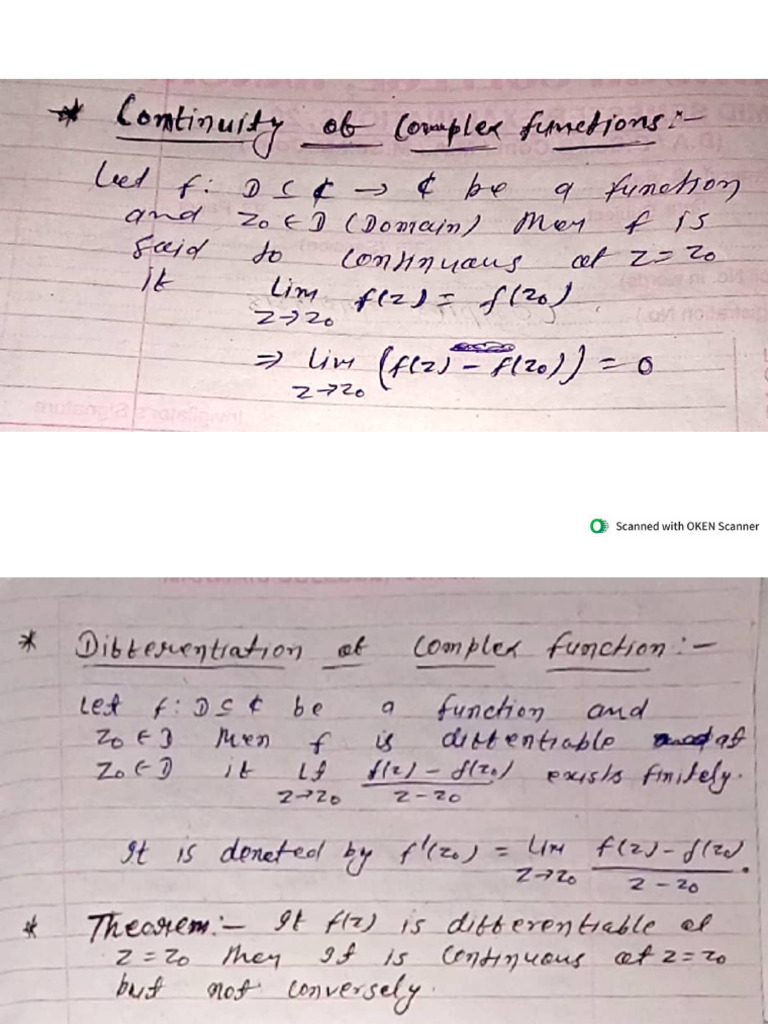 * Continuity of Complex functions:-
Let f: D ⊆ ₵ → ₵ be a function
and z₀ ∈ D (Domain) then f is
said to continuous at z = z₀
if lim z→z₀ f(z) = f(z₀)
⇒ lim z→z₀ (f(z) - f(z₀)) = 0
Scanned with OKEN Scanner
* Differentiation of Complex function:-
Let f: D ⊆ ₵ be a function and
z₀ ∈ D then f is diffentiable at
z₀ ∈ D if Lt z→z₀ f(z) - f(z₀) / z - z₀ exists finitely.
It is denoted by f'(z₀) = Lim z→z₀ f(z) - f(z₀) / z - z₀.
* Theorem:- If f(z) is differentiable at
z = z₀ then It is Continuous at z = z₀
but not conversely.